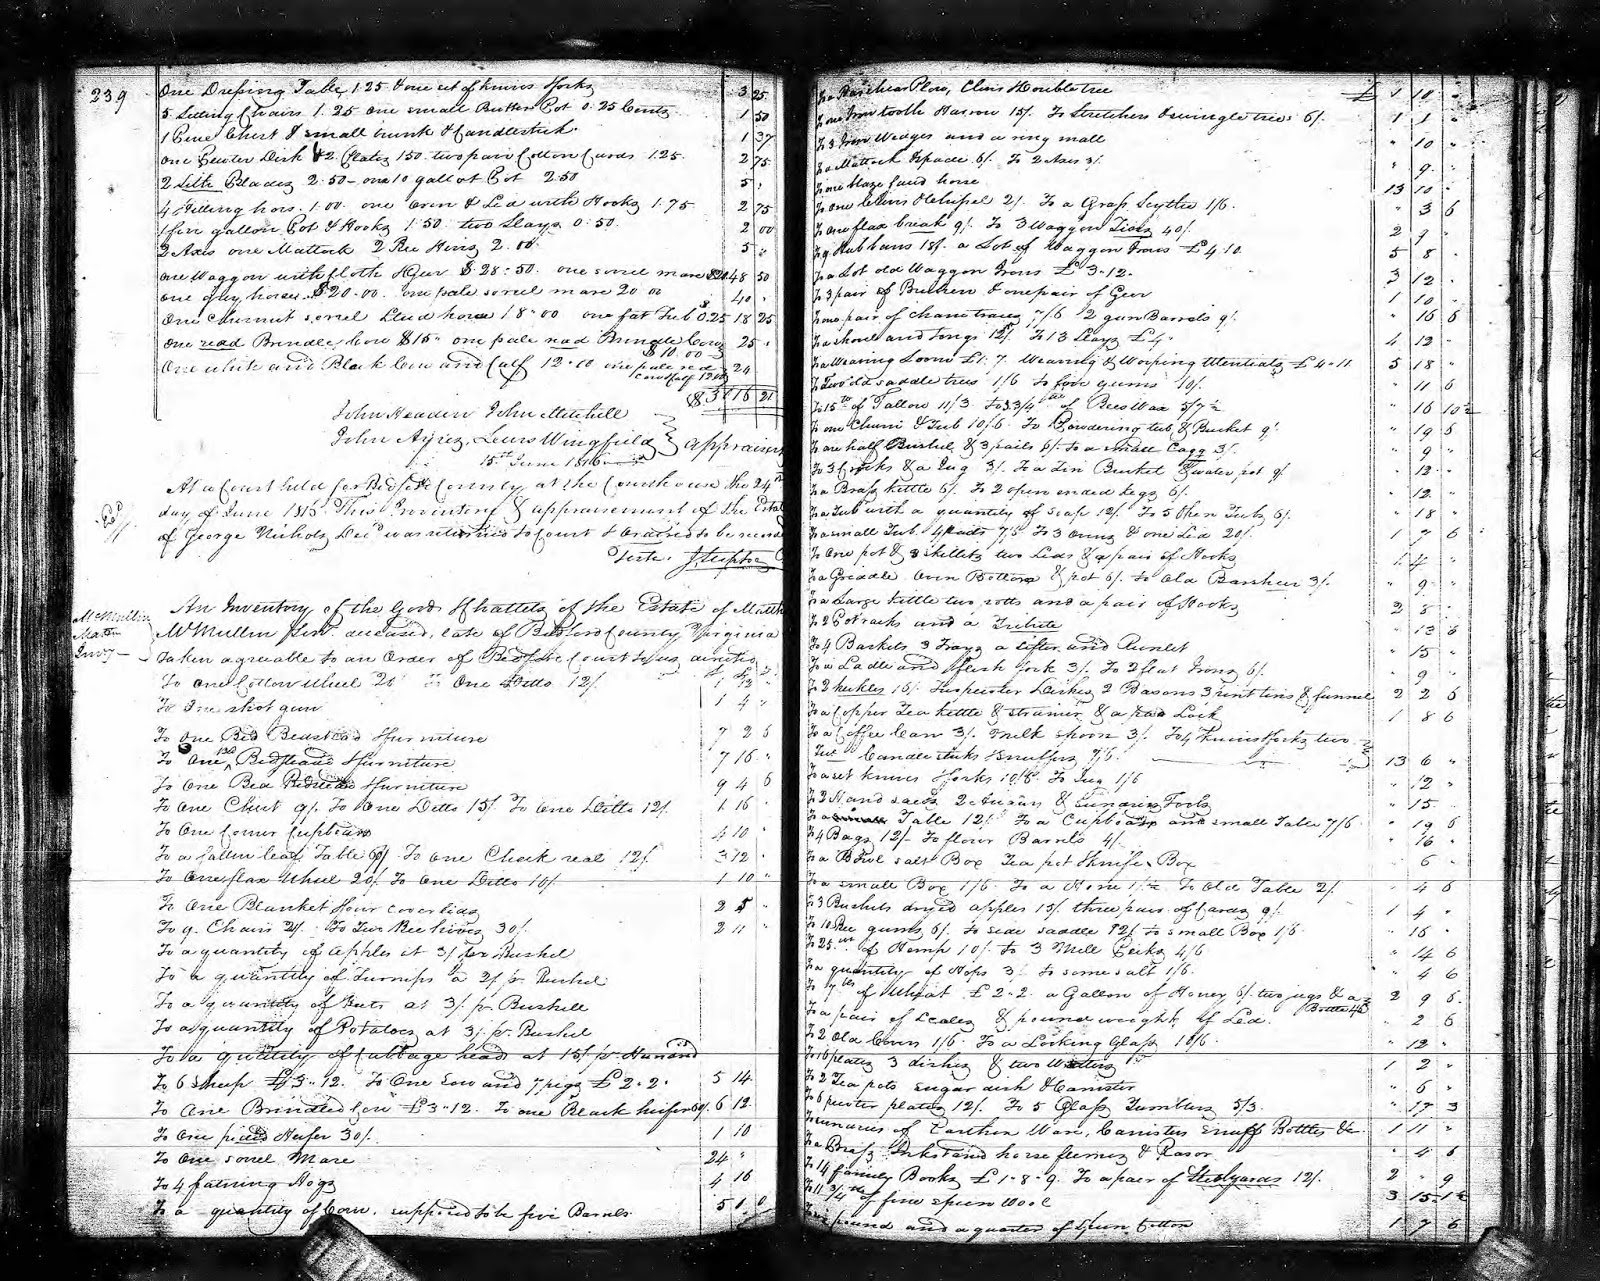 239
One Dressing Table 1.25 & one set of knives & forks 3 25
5 Setting Chairs 1.25 one small Butter Pot 0.25 Cents 1 50
1 Pine Chest & small trunk & Candlestick 1 37
One Pewter Dish & 2 Plates 1.50 two pair Cotton Cards 1.25 2 75
2 Sith Blades 2.50 – one 10 gallon Pot 2.50 5 "
4 Hilling hoes 1.00 one Oven & Led with Hooks 1.75 2 75
1 five gallon Pot & Hooks 1.50 two Slays 0.50 2 00
2 Axes one Mattock 2 Bee Hives 2.00 5 "
one Waggon with Cloth & Gear $28.50 one sorrel mare $20 48 50
one gray horse $20.00 one pale sorrel mare 20 00 40 "
One Chesnut sorrel Stud horse 18.00 one fat Tub $0.25 18 25
One read Brindle Cow $15 " one pale read Brindle Cow $10.00 25 "
One white and Black Cow and Calf 12.00 one pale red Cow & Calf 12.00 24
$316 21
John Headen John Mitchell
John Ayres, Lewis Wingfield } appraisers
15th June 1816
At a Court held for Bedford County at the Courthouse the 24th
day of June 1815 This Inventory & appraisement of the Estate
of George Nichols Decd was returned to Court & ordered to be recorded
Teste. J Steptoe C
McMullin
Matw
Invy
An Inventory of the Goods & Chattels of the Estate of Matth
McMullin Senr. deceased, late of Bedford County Virginia
Taken agreeable to an Order of Bedford Court to us directed
To one Cotton Wheel 20/ To One Ditto 12/. 1 12 "
To One shot gun 1 4 "
To One Bed Bedstead & furniture 7 2 6
To One Bed Bedstead & furniture 7 16 "
To One Bed Bedstead & furniture 9 4 6
To One Chest 9/. To One Ditto 15/. To One Ditto 12/. 1 16 "
To One Corner Cupboard 4 10 "
To a fallen leaf Table To One Check reel 12/. 3 12 "
To One flax Wheel 20/. To One Ditto 10/. 1 10 "
To One Blanket & four coverlids 2 5 "
To 9 Chairs 21/. To Two Bee hives 30/. 2 11 "
To a quantity of apples at 3/ pr Bushel
To a quantity of Turneps a 2/ pr Bushel
To a quantity of Beets at 3/. pr Bushell
To a quantity of Potatoes at 3/. pr. Bushel
To a quantity of Cabbage head at 15/ pr. Hundred
To 6 sheep £3"12. To One Sow and 7 pigs £2"2" 5 14
To One Brindled Cow £3"12. To one Black heifer 60/. 6 12
To One pieded Heifer 30/. 1 10
To One sorrel Mare 24 "
To 4 fatning Hogs 4 16
To a quantity of Corn, supposed to be five Barrels 5 0 0
To a Barshear Plow, Clevis & Doubletree £ 1 10 "
To one Iron tooth Harrow 15/. To Stretchers & swingle trees 6/. 1 1 "
To 3 Iron Wedges and a ring mall " 10 "
To a Mattock & spade 6/. To 2 Axes 3/. " 9 "
To one blaze faced horse 13 10 "
To One Clevis & Chissel 2/. To a Grass Scythe 1/6. " 3 6
To One flax break 9/. To 3 Waggon Tiers 40/. 2 9 "
To 9 Hub bans 18/. a Lot of Waggon Irons £4.10 5 8 "
To a Lot old Waggon Irons £3"12. 3 12 "
To 3 pair of Britchen & one pair of Gear 1 10 "
To one pair of chain traces 7/6 2 gun Barrels 9/. " 16 6
To a shovel and tongs 12/. To 13 Slays £4" 4 12 "
To a Weaving Loom £1.7. Weaving & Warping Utentials £4"11 5 18 "
To Two old saddle trees 1/6 to five gums 10/. " 11 6
To 15 lb of Tallow 11/3 to 3 3/4 lb of Bees Wax 5/7½ " 16 10½
To one Churn & Tub 10/6. To Powdering tub & Bucket 9/. " 19 6
To one half Bushel & 3 pails 6/. to a small Cagg 3/. " 9 "
To 3 Crocks & a Jug 3/. To a Tin Bucket & water pot 9/ " 12 "
To a Brass kettle 6/. To 2 open ended kegs 6/. " 12 "
To a Tub with a quantity of soap 12/. To 5 Open Tubs 6/. " 18 "
To a small Tub & 4 pails 7/6 To 3 ovens & one Lid 20/. 1 7 6
To One pot & 3 skillets two Leds & a pair of Hooks 1 4 "
To a Griddle Oven Bottom & pot 6/. to Old Barshear 3/. " 9 "
To a Large kettle two potts and a pair of Hooks 2 8 "
To 2 Potracks and a Tribite " 13 6
To 4 Baskets 3 Trays a sifter and Runlet " 15 "
To a Ladle and flesh fork 3/. To 2 flat Irons 6/. " 9 "
To 2 heckles 15/. Two pewter Dishes 2 Basons 3 pint tins & funnel 2 2 6
To a Copper Tea kettle & strainer & a pad Lock 1 8 6
To a Coffee Can 3/. Milk spoon 3/. To 4 knives & forks two
Candlesticks & snuffers 7/6. 13 6 "
To a set knives & forks 10/6. To Jug 1/6 " 12 "
To 2 Hand saws 2 Augars & sundries Tools " 15 "
To a Table 12/. To a Cupboard and small Table 7/6 " 19 6
To 4 Bags 12/. To flour Barrels 4/. " 16 "
To a salt Box Tea pot & knife Box " 6 "
To a small Box 1/6. To a Hone 1/. To Old Table 2/. " 4 6
To 3 Bushels dryed apples 15/. three pair of Cards 9/. 1 4 "
To 10 Bee gums 6/. To side saddle 12/. To small Box 1/6. " 16 "
To 25 lb of Hemp 10/. to 3 Mill Pecks 4/6 " 14 6
To a quantity of Hops 3/. to some salt 1/6. " 4 6
To of Wheat £2.2. a Gallon of Honey 6/. two jugs & a Bottle 2 9 6.
To a pair of Scales & pound weight of Led. " 2 6
To 2 Old Ovens 1/6. To a Looking Glass 10/6. " 12 "
To 16 plates 3 dishes & two Waiters 1 2 "
To 2 Tea pots sugar dish & Canister " 6 "
To 6 pewter plates 12/. To 5 Glass Tumblers 5/3. " 17 3
To sundries of Earthen Ware, Canisters Snuff Bottles &c 1 11 "
To a Brass Inkstand horse flemes & Rasor " 4 6
To 14 family Books £1.8.9. To a pair of Stilyards 12/. 2 " 9
To 11 3/4 lb of fine spun wool 3 15 1½
pound and a quarter of Spun Cotton 1 7 6